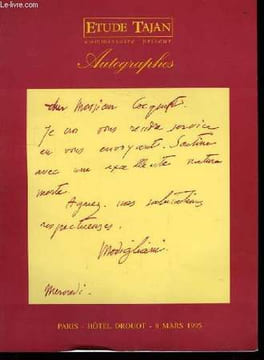 Le-livre.com
ETUDE TAJAN
COMMISSAIRE PRISEUR
Autographes
Cher Monsieur
Je crois vous rendre service
en vous envoyant Soutine
avec une excellente nature
morte.
Agréez mes salutations
respectueuses.
Modigliani
Mercredi.
PARIS - HÔTEL DROUOT - 8 MARS 1995